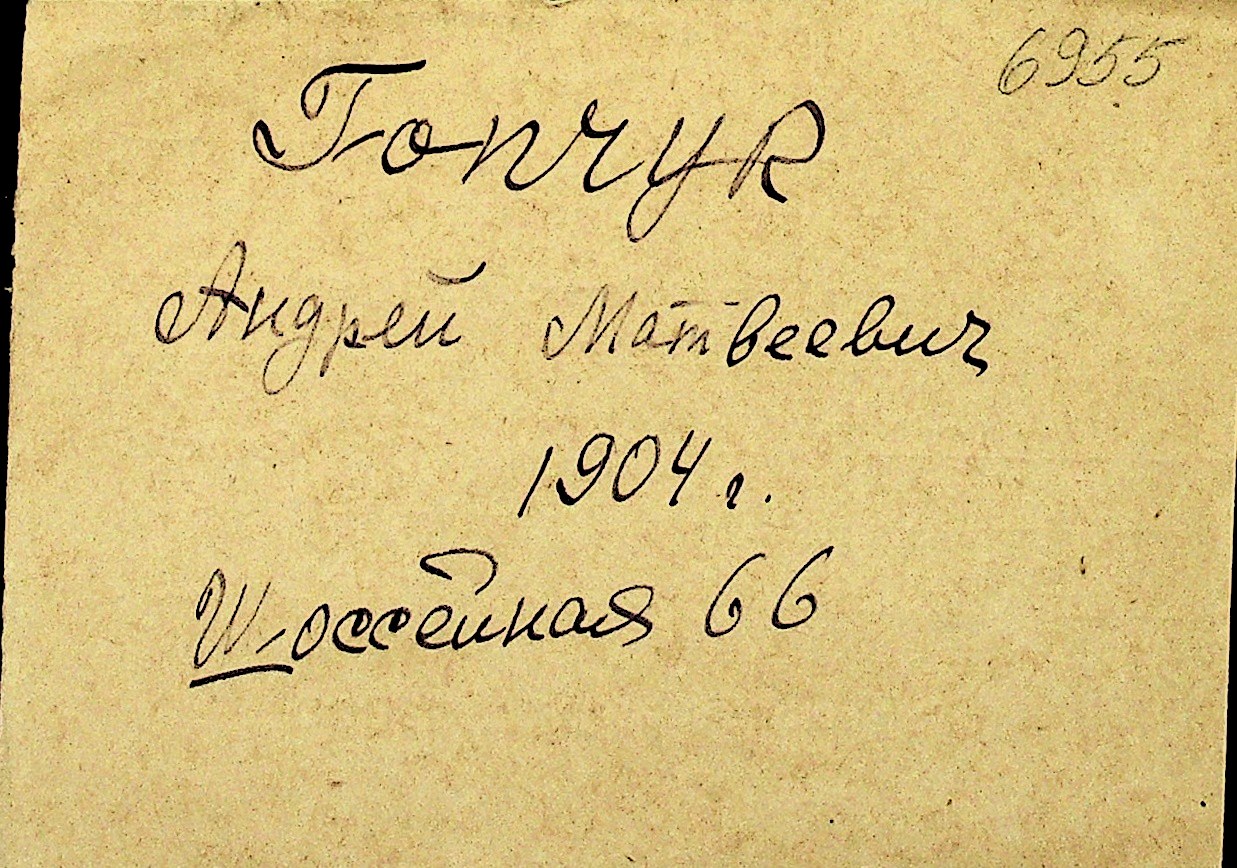 6955
Гопчук
Андрей Матвеевич
1904 г.
Шоссейная 66